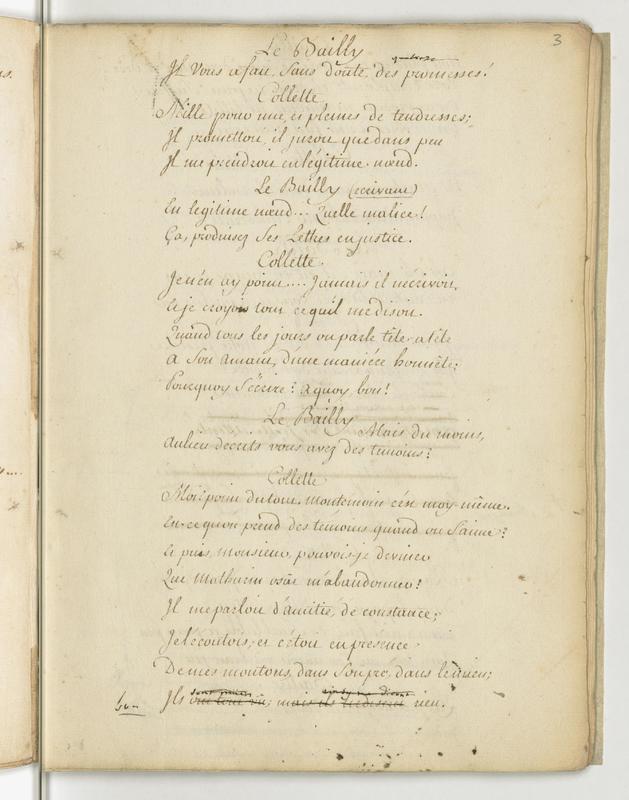 3
Le Bailly
Il vous a fait, sans doute, des promesses!
Collette
Mille pour une, et pleines de tendresses;
Il promettoit, il juroit que dans peu
Il me prendroit en légitime nœud.
Le Bailly (ecrivant)
En legitime nœud... Quelle malice!
Ça, produisez ses Lettres en justice.
Collette.
Je n'en ay point.... Jamais il n'écrivoit,
Et je croyois tout ce qu'il me disoit.
Quand tous les jours on parle tête-a tête
A son amant, d'une maniére honnête;
Pourquoy s'écrire? a quoy bon!
Le Bailly
Mais du moins,
Aulieu decrits vous avez des temoins?
Collette
Moi? point dutout. Mon temoin c'est moy-même.
Est-ce qu'on prend des témoins quand on s'aime?
Et puis, Monsieur, pouvois-je deviner
Que Mathurin osât m'abandonner!
Il me parloit d'amitié, de constance;
Je l'écoutois, et c'étoit en presence
De mes moutons, dans son pré, dans le mien;
Ils ont tout vu, mais ils ne disent rien.